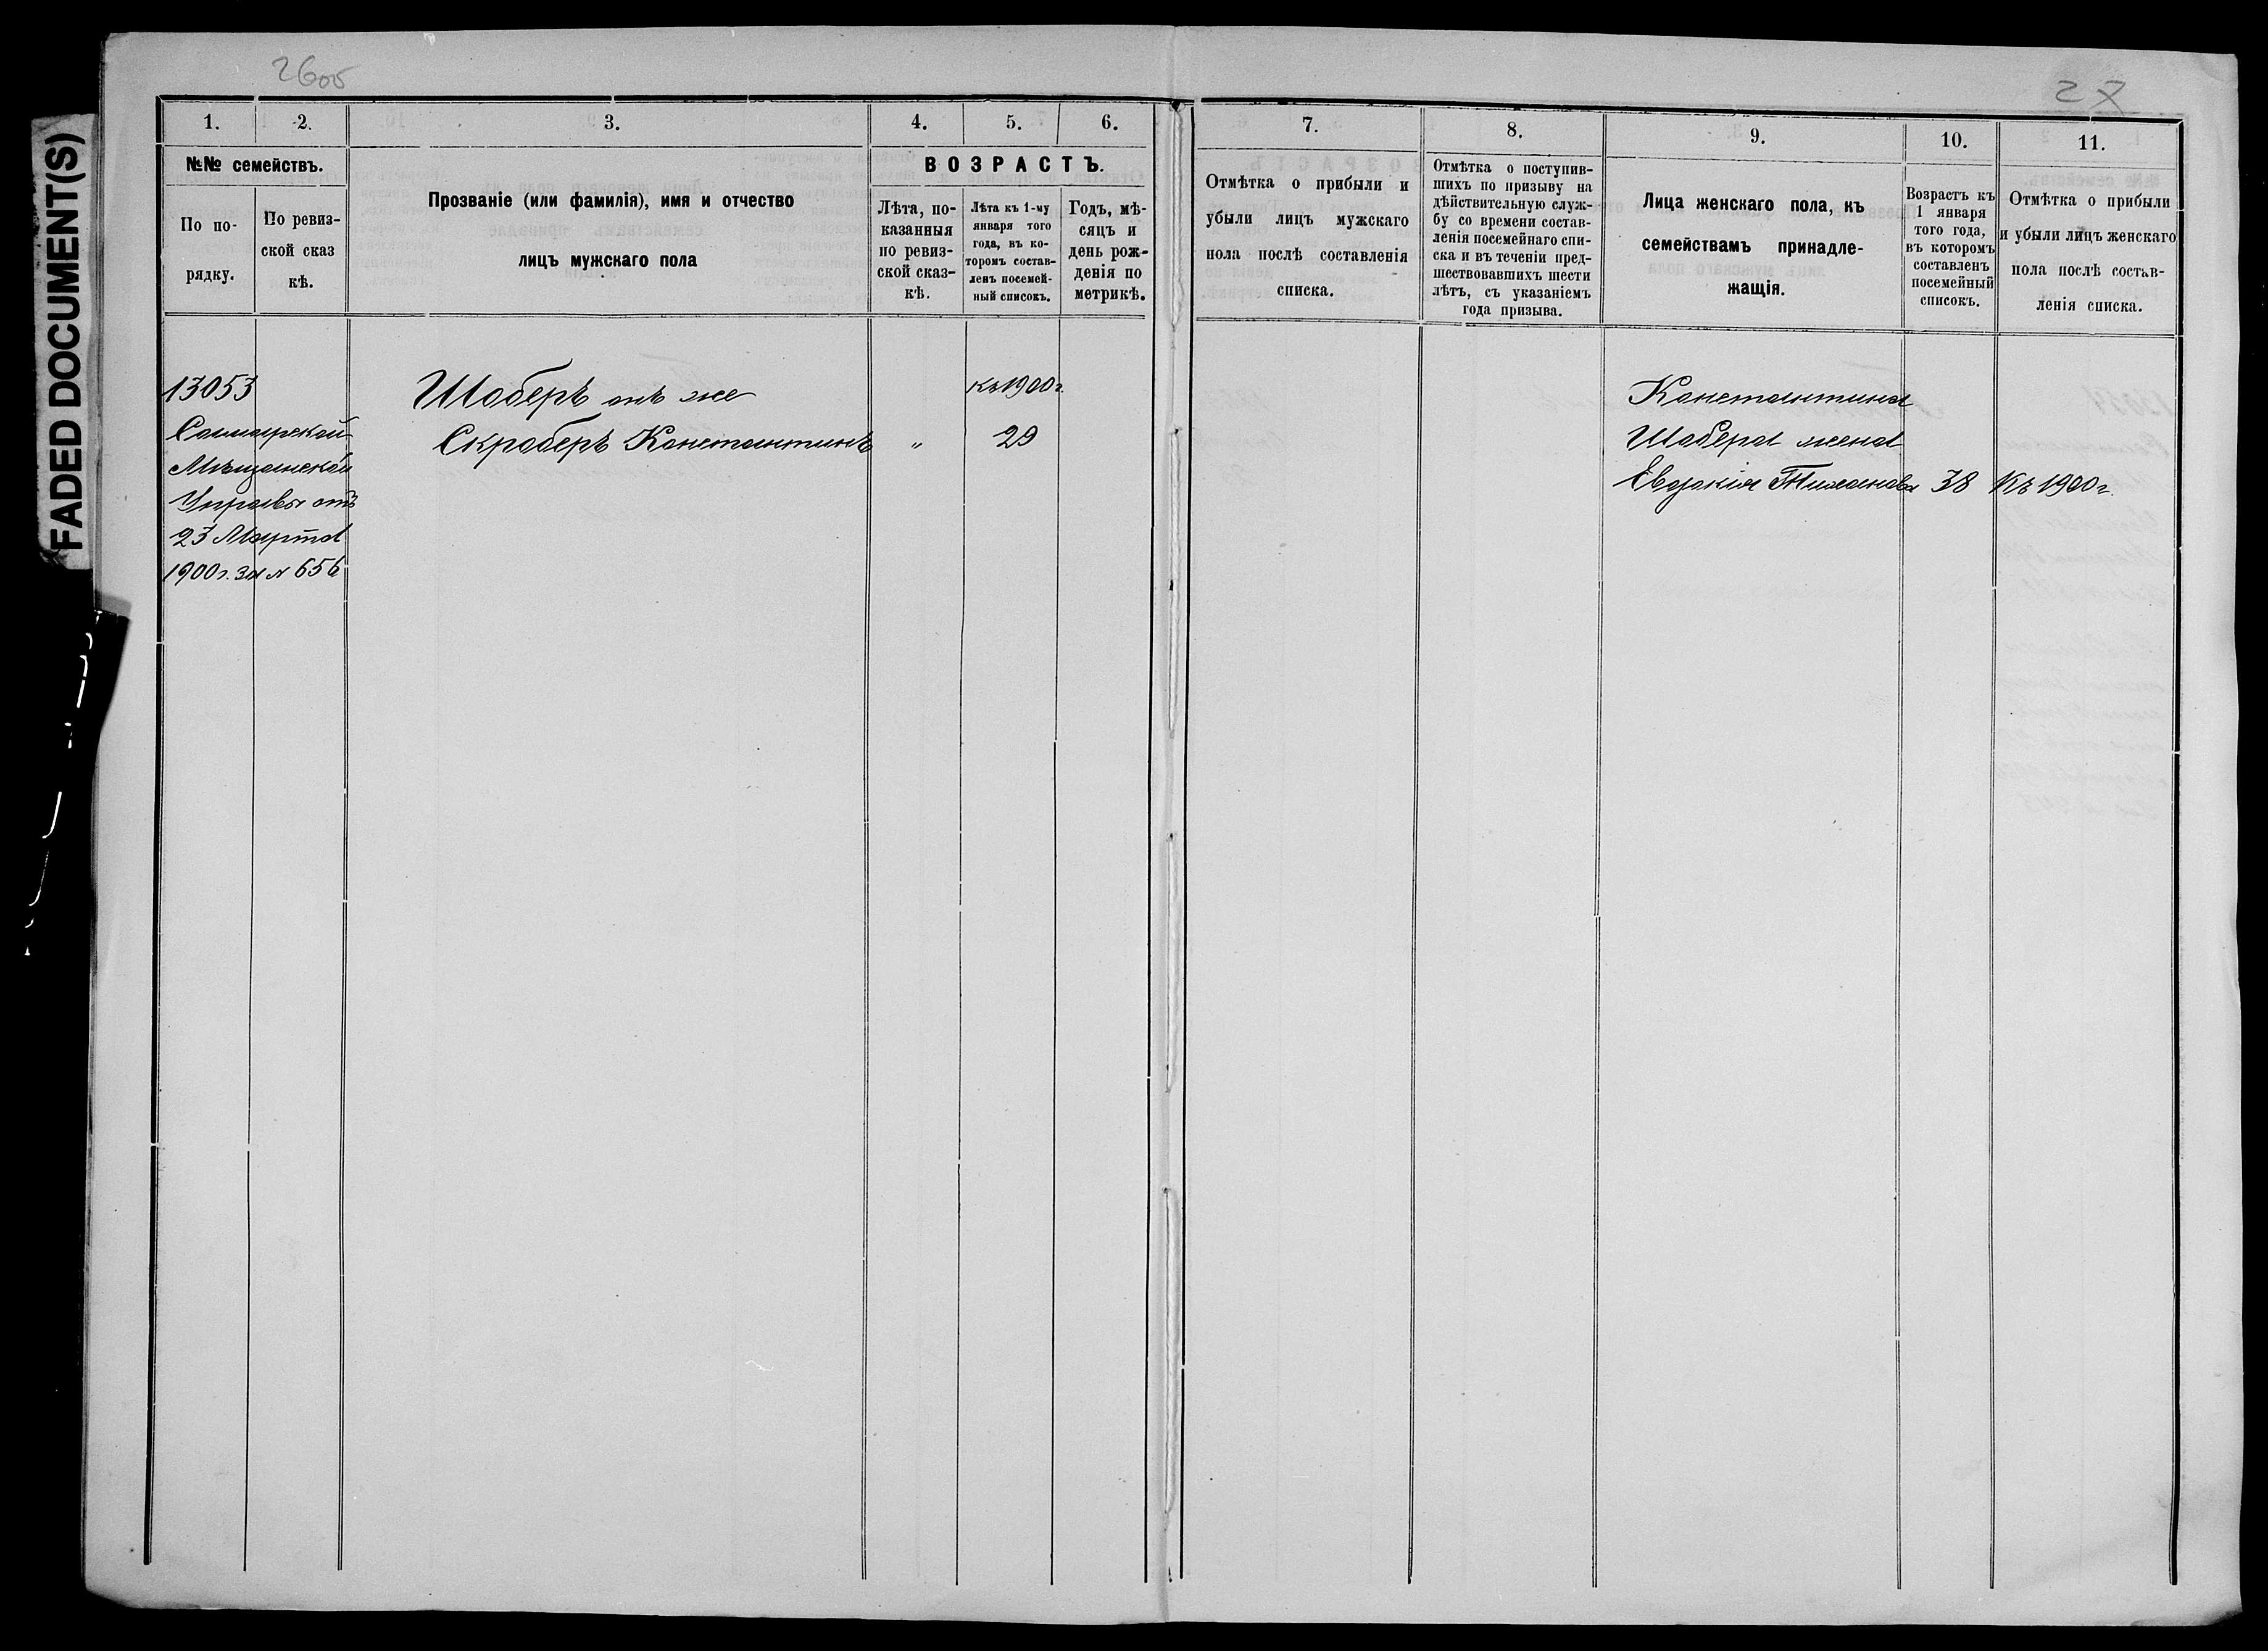 FADED DOCUMENT(S)
1.
2.
3.
4.
5.
6.
№№ семействъ.
По по-
рядку.
По ревиз-
ской сказ
кѣ.
Прозваніе (или фамилія), имя и отчество
лицъ мужскаго пола
ВОЗРАСТЪ.
Лѣта, по-
казанныя
по ревиз-
ской сказ-
кѣ.
Лѣта къ 1-му
января того
года, въ ко-
торомъ состав-
ленъ посемей-
ный списокъ.
Годъ, мѣ-
сяцъ и
день рож-
денія по
метрикѣ.
13053
Самарской
Мѣщанской
Управы отъ
23 Марта
1900 г. за № 656
Шаберъ онъ же
Скраберъ Константинъ
"
къ 1900 г.
29
7.
8.
9.
10.
11.
Отмѣтка о прибыли и
убыли лицъ мужскаго
пола послѣ составленія
списка.
Отмѣтка о поступив-
шихъ по призыву на
дѣйствительную служ-
бу со времени состав-
ленія посемейнаго спи-
ска и въ теченіи пред-
шествовавшихъ шести
лѣтъ, съ указаніемъ
года призыва.
Лица женскаго пола, къ
семействамъ принадле-
жащія.
Возрастъ къ
1 января
того года,
въ которомъ
составленъ
посемейный
списокъ.
Отмѣтка о прибыли
и убыли лицъ женскаго
пола послѣ состав-
ленія списка.
Константина
Шабера жена
Евдокія Тиханова 38 Къ 1900 г.